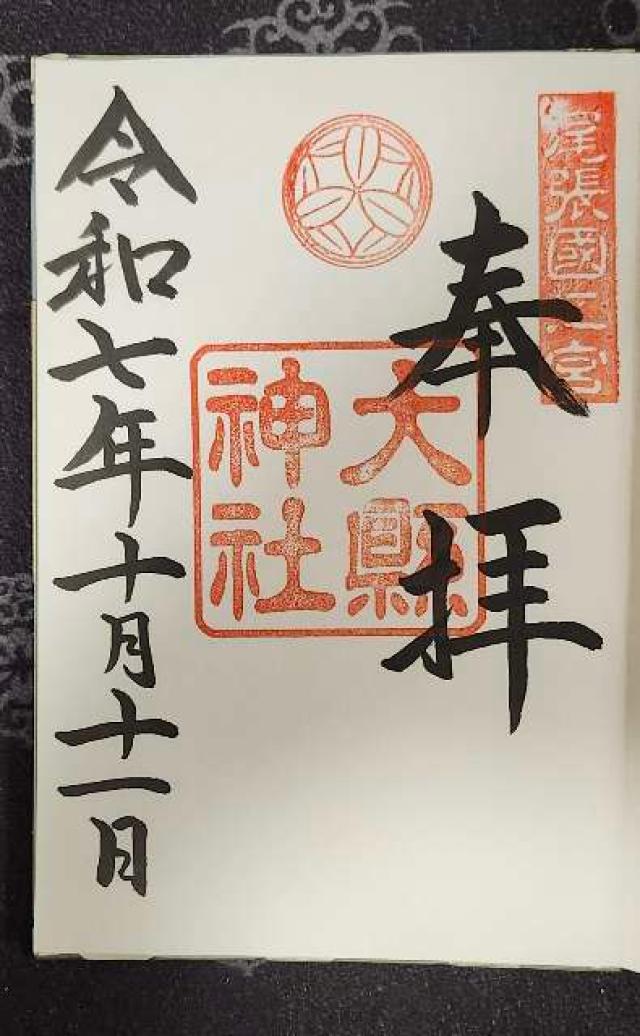 尾張國二宮
奉拝
大縣神社
令和七年十月十一日